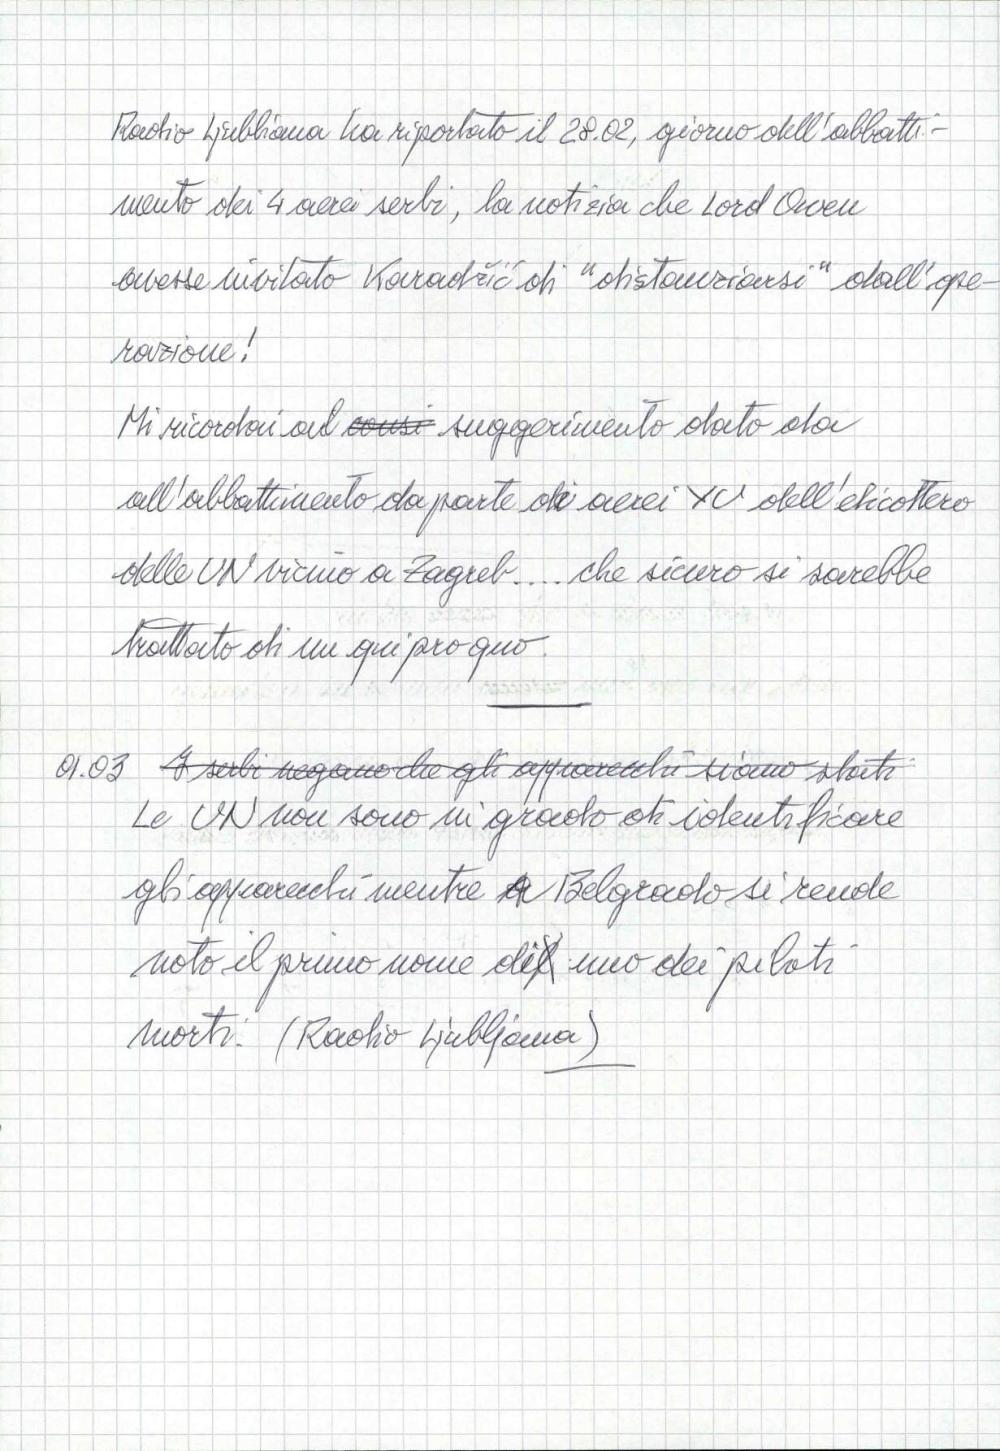 Radio Ljubbiana ha riportato il 28.02, giorno dell'abbatti-
mento dei 4 aerei serbi, la notizia che Lord Owen
avesse invitato Karadžić di "distanziarsi" dall'ope-
razione!
Mi ricordai al consi suggerimento dato da
all'abbattimento da parte di aerei YU dell'elicottero
delle UN vicino a Zagreb.... che sicuro si sarebbe
trattato di un qui pro quo.
01.03 I serbi negano che gli apparecchi siano stati
Le UN non sono in grado di identificare
gli apparecchi mentre a Belgrado si rende
noto il primo nome di uno dei piloti
morti. (Radio Ljubljana)